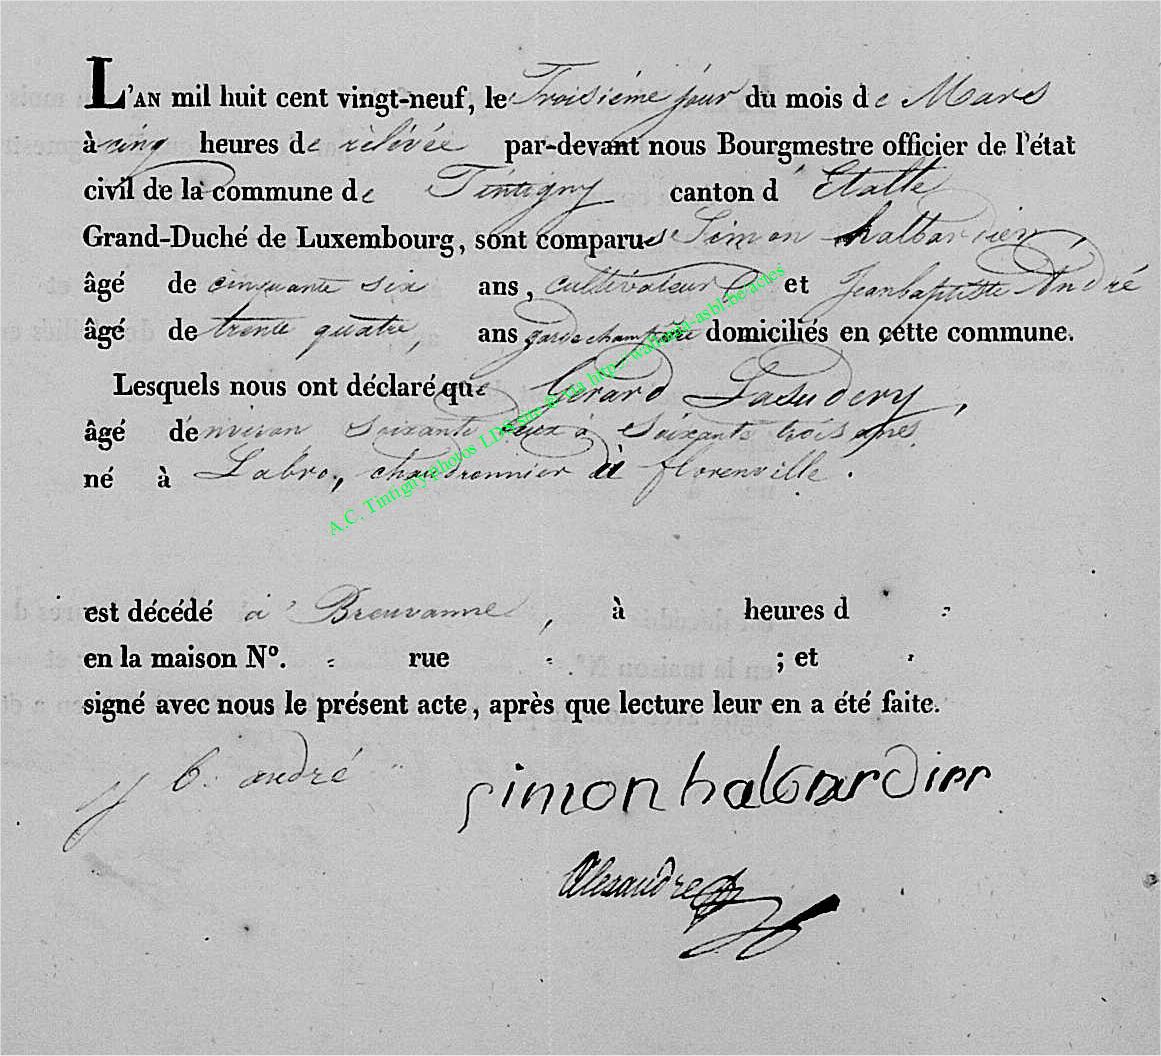 L'AN mil huit cent vingt-neuf, le Troisiéme jour du mois de Mars
à cinq heures de rélévée par-devant nous Bourgmestre officier de l'état
civil de la commune de Tintigny canton d'Etalle
Grand-Duché de Luxembourg, sont comparus Simon halbardier,
âgé de cinquante six ans, cultivateur et Jeanbaptiste André
âgé de trente quatre, ans gardechampêtre domiciliés en cette commune.
Lesquels nous ont déclaré que Gérard,
âgé d'environ soixante deux à soixante trois ans,
né à Labro, chaudronnier à florenville.
est décédé à Breuvanne, à heures d
en la maison N°. rue ; et
signé avec nous le présent acte, après que lecture leur en a été faite.
j b. andré simon halbardier
Alexandre
A.C. Tintigny photos LDS site © via http://wallonia-asbl-be/actes